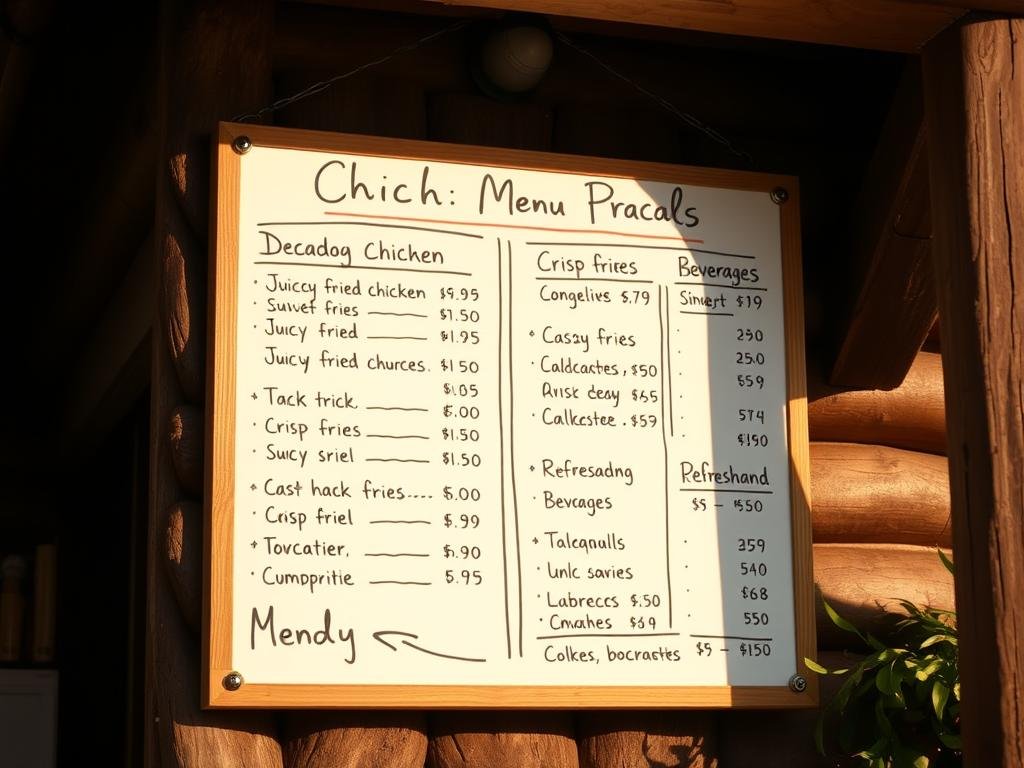 Chich: Menu Pracals
Decadog Chicken
Juiccy fried chicken $9.95
Suvet fries $1.50
Juicy fried $1.95
Juicy fried churces. $1.50
$1.05
Tack trick. $.00
Crisp fries $1.50
Suicy sriel $1.50
Cast hack fries.... $.00
Crisp friel $.99
Tovcatier, $.90
Cumppritie 5.95
Mendy
Crisp frires
Congelivs $.79
Casay fries
Caldcactes, $50
Calkcstee . $59
Refresadng
Bevcages
Talcqnulls
Unlc savies
Labreccs $.50
Cmcahes $69
Colkes, bocrastes $5 – $150
Beverages
$19
250
25.0
$59
574
$190
Refreshand
$5 – $550
359
540
$68
550